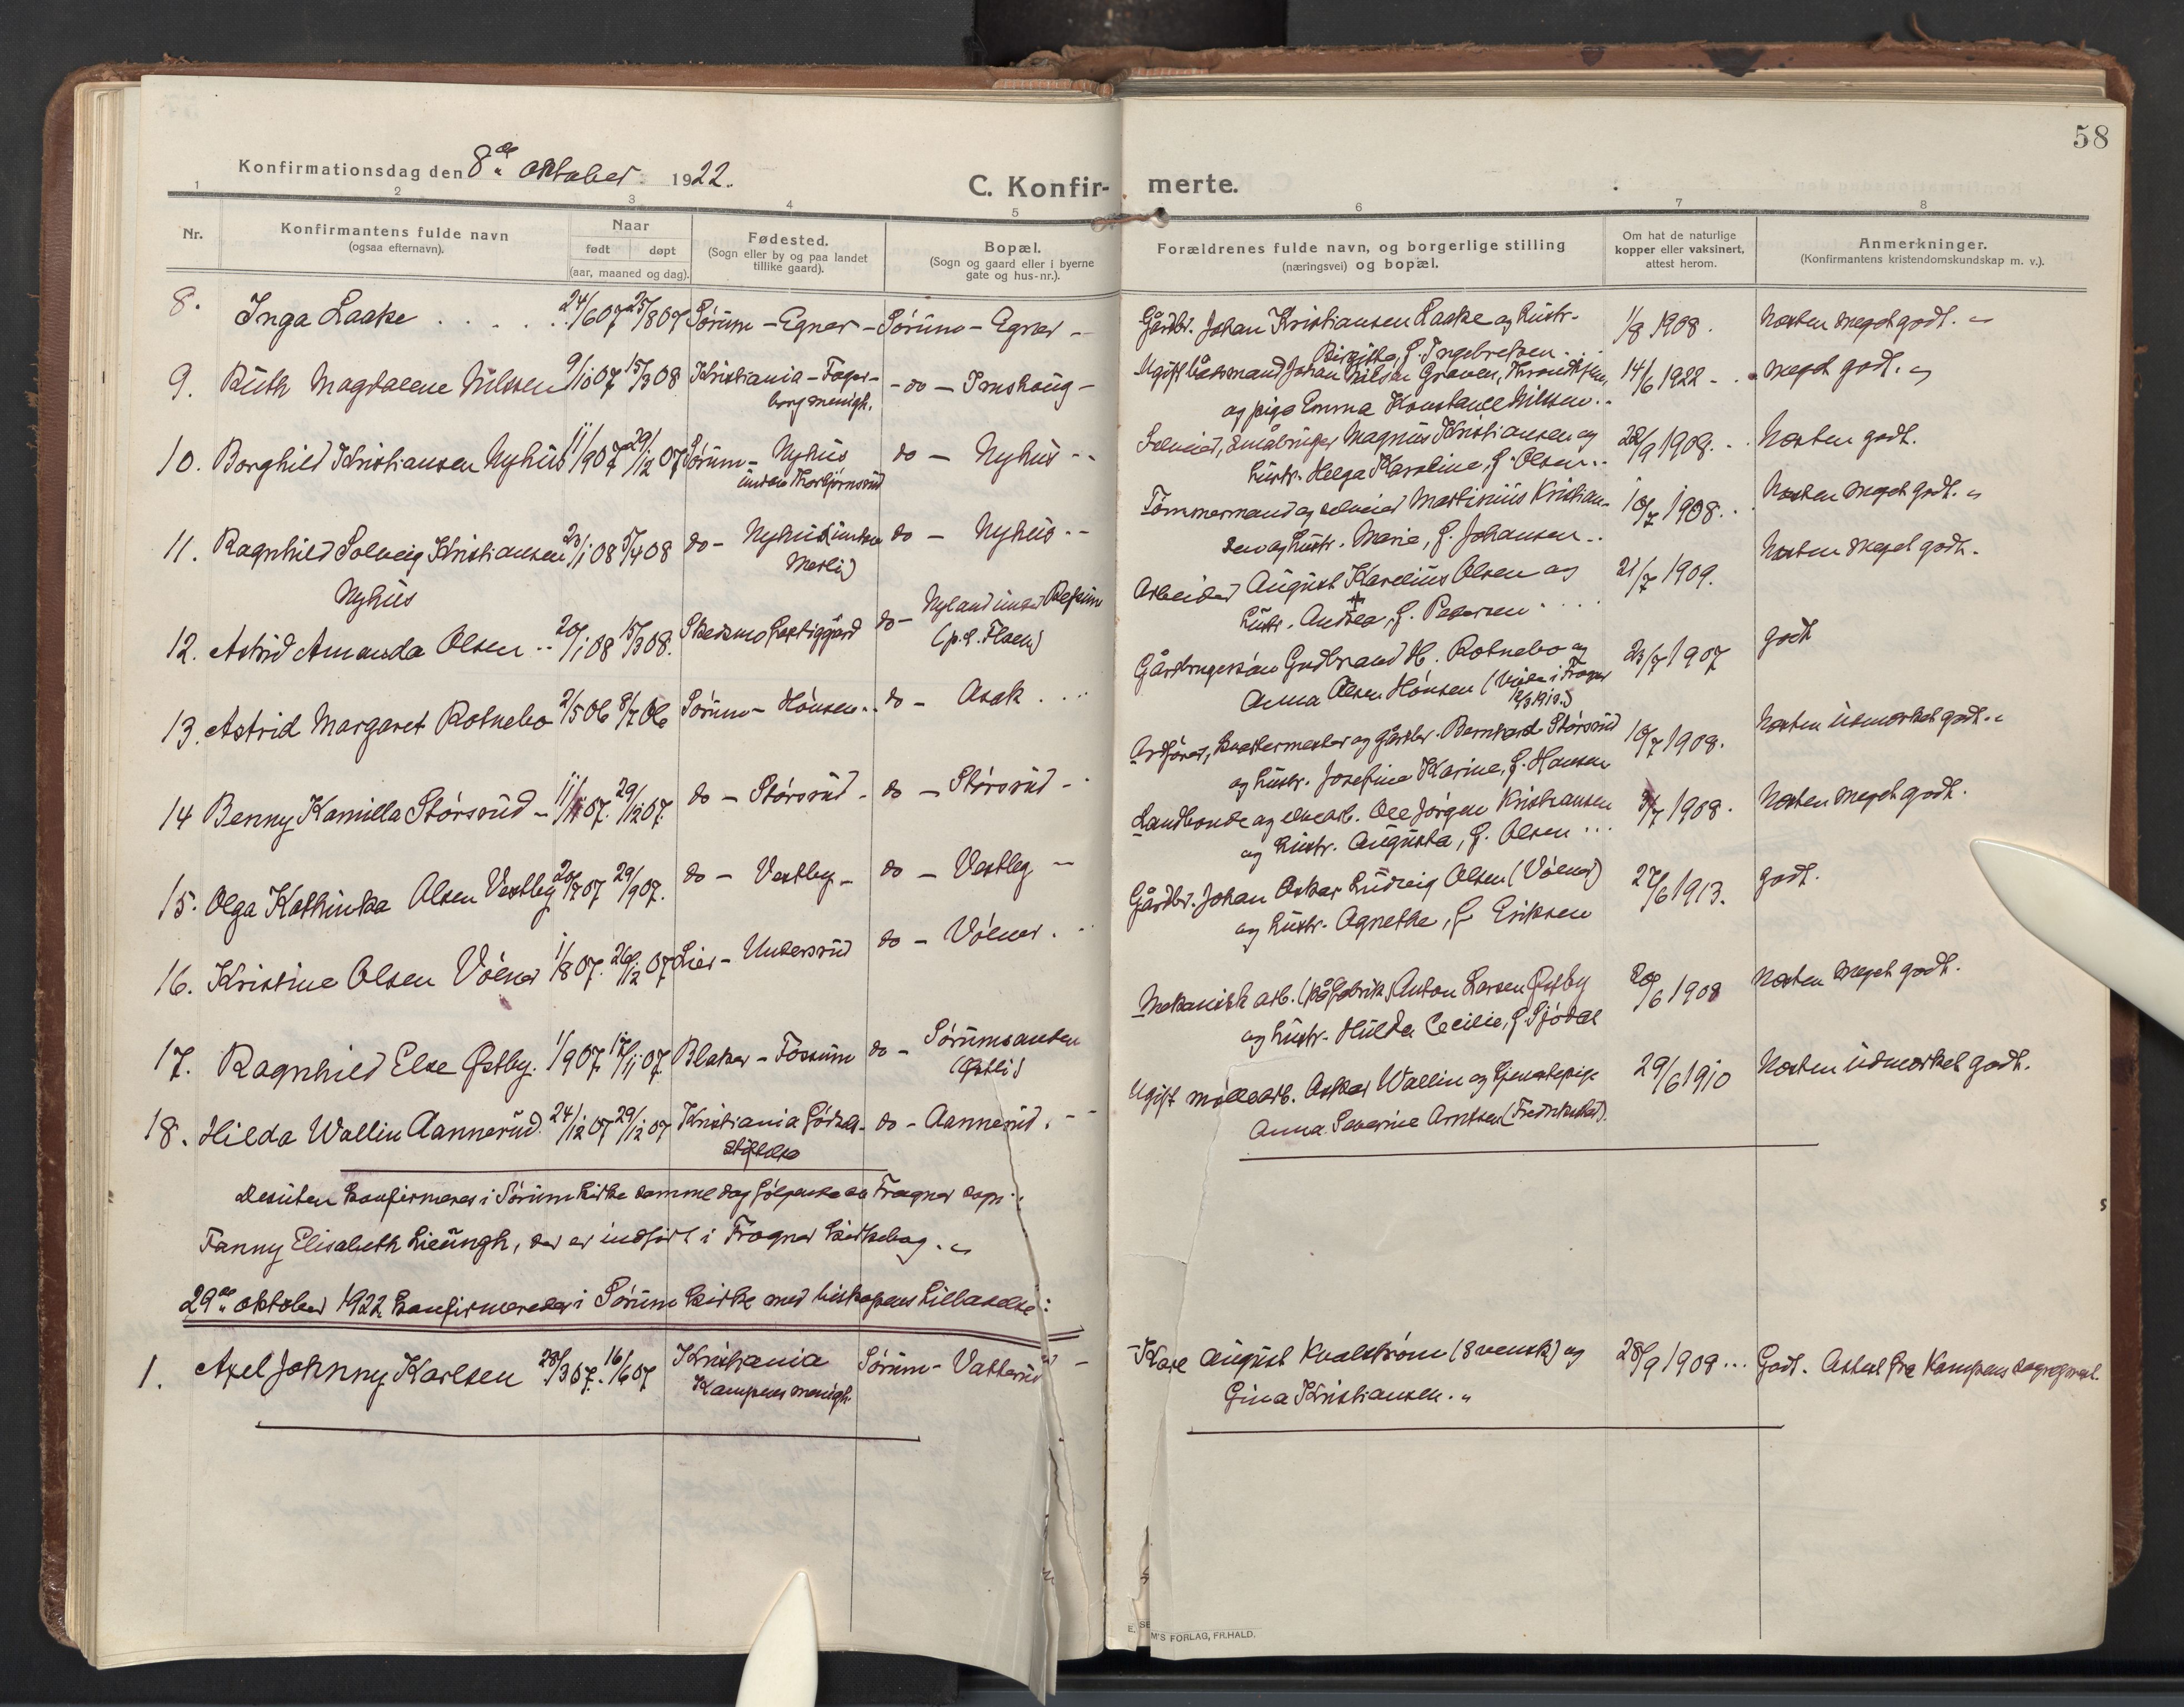 58
Konfirmationsdag den 8de oktober 1922.
C. Konfirmerte.
1 2 3 4 5 6 7 8
Nr.
Konfirmantens fulde navn
(ogsaa efternavn).
Naar
født døpt
(aar, maaned og dag).
Fødested.
(Sogn eller by og paa landet
tillike gaard).
Bopæl.
(Sogn og gaard eller i byerne
gate og hus-nr.).
Forældrenes fulde navn, og borgerlige stilling
(næringsvei) og bopæl.
Om hat de naturlige
kopper eller vaksinert,
attest herom.
Anmerkninger.
(Konfirmantens kristendomskundskap m. v.).
8. Inga Laake 24/6 07 25/8 07 Sørum - Egner - Sørum - Egner -
Gårdbr. Johan Kristiansen Laake og hustr. 1/8 1908. Næsten meget godt.
Birgitte, f. Ingebretsen.
9. Ruth Magdalene Nilssen 9/10 07 15/3 08 Kristiania - Fager-
borg menigh.
- do - Imshaug -
Ugift båtsmand Johan Nilsen Graven, Throndhjem, 14/6 1922 - meget godt.
og pige Emma Konstanse Nilssen.
10. Borghild Kristiansen Nyhus 11/9 07 29/12 07 Sørum - Nyhus
under Thorbjørnsrud
do - Nyhus -
Selveier, småbruger Magnus Kristiansen og 28/9 1908. Næsten godt.
hustr. Helga Karoline, f. Olsen.
11. Ragnhild Solveig Kristiansen 23/1 08 5/4 08 do - Nyhus (under
Merli)
Nyhus
do - Nyhus. -
Tømmermand og selveier Martinius Kristian- 10/7 1908. Næsten meget godt.
sen og hustr. Marie, f. Johansen.
12. Astrid Amanda Olsen 20/1 08 15/3 08. Skedsmo fattiggård do - Nyland under Refsum
(p. t. Flaen)
Arbeider August Karelius Olsen og 21/7 1909. Næsten meget godt.
hustr. Andrea, f. Pedersen
13. Astrid Margaret Rotnebo 2/5 06 8/7 06 Sørum - Hønsen do - Asak
Gårdbrugersøn Gudbrand H. Rotnebo og 23/7 1907 godt
Anna Olsen Hønsen (viede i Frogner
12/3 1910.)
14 Benny Kamilla Størsrud - 11/11 07. 29/12 07. do - Størsrud - do - Størsrud -
Ordfører, kvartermester og gårdbr. Bernhard Størsrud 10/7 1908. Næsten udmærket godt.
og hustr. Josefine Karine, f. Hansen
15. Olga Kathinka Olsen Vestby 20/7 07 29/9 07. do - Vestby - do - Vestby -
Landhandler Ole Jørgen Kristiansen 3/7 1908. Næsten meget godt.
og hustr. Augusta, f. Olsen
16. Kristine Olsen Vølner 1/8 07. 26/12 07 Lier - Undersrud do - Vølner.
Gårdbr. Johan Oskar Ludvig Olsen (Vølner) 27/6 1913. godt.
og hustr. Agnethe, f. Eriksen
17. Ragnhild Else Østby. 1/9 07. 17/11 07 Blaker - Fossum do - Sørumsanden
(Østli)
Mekanisk arb. (på fabrik) Anton Larsen Østby 20/6 1908 Næsten meget godt.
og hustr. Hulda Cecilie, f. Sjødal
18. Hilda Wallin Aannerud. 24/12 07 29/12 07 Kristiania Fødsels-
stiftelse
do - Aannerud.
Ugift møllearb. Oskar Wallin og tjenestepige 29/6 1910 Næsten udmærket godt.
Anna Severine Arntsen (Fredrikshald).
Desuten konfirmeres i Sørum kirke samme dag følgende av Frogner sogn:
Fanny Elisabeth Lieungh, der er indført i Frogner kirkebog.
29de oktober 1922 konfirmeredes i Sørum kirke med biskopens tillatelse:
1. Axel Johnny Karlsen 28/3 07. 16/6 07 Kristiania
Kampens menigh.
Sørum - Vatterud -
Karl August Kvalstrøm (svensk) og 28/9 1908 ... Godt. Attest fra Kampens sogneprest.
Gina Kristiansen.
M'S FORLAG, FR.HALD.